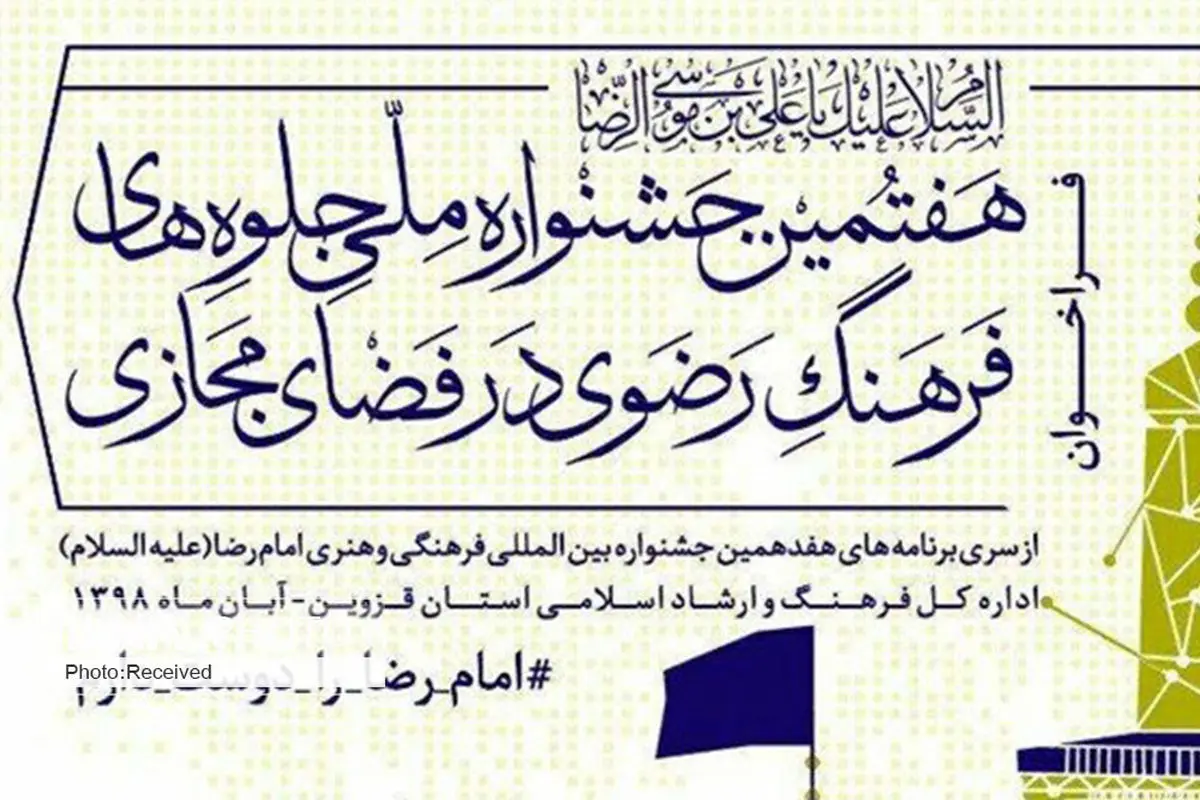 السلام علیک یا علی بن موسی الرضا
فراخوان
هفتمین جشنواره ملّی جلوه های
فرهنگِ رضوی در فضای مجازی
از سری برنامه های هفدهمین جشنواره بین المللی فرهنگی و هنری امام رضا (علیه السلام)
اداره کل فرهنگ و ارشاد اسلامی استان قزوین - آبان ماه ۱۳۹۸
#امام_رضا_را_دوست_دارم
Photo:Received